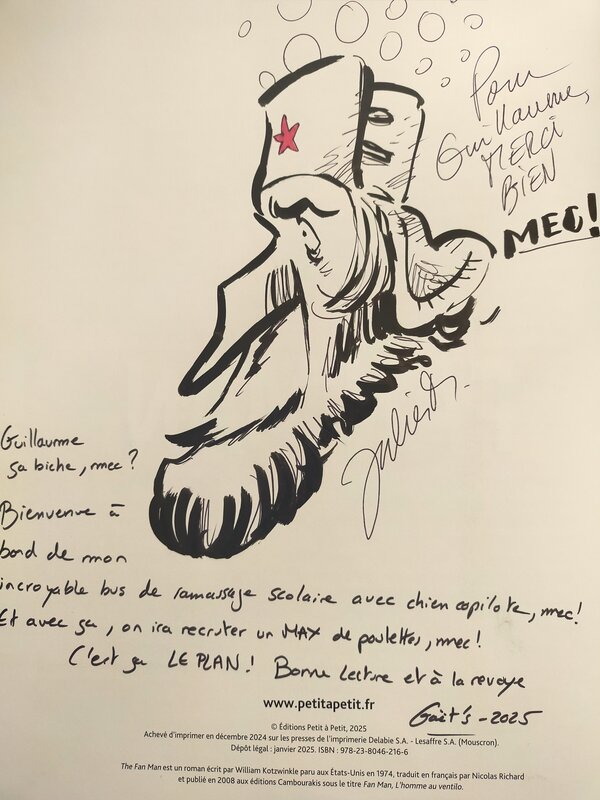 Pour
Guillaume,
MERCI
BIEN
MEC!
Guillaume
ça biche, mec ?
Bienvenue à
bord de mon
incroyable bus de ramassage scolaire avec chien copilote, mec!
Et avec ça, on ira recruter un MAX de poulettes, mec!
C'est ça LE PLAN! Bonne lecture et à la revoye
Gaët's - 2025
www.petitapetit.fr
© Éditions Petit à Petit, 2025
Achevé d'imprimer en décembre 2024 sur les presses de l'imprimerie Delabie S.A. - Lesaffre S.A. (Mouscron).
Dépôt légal : janvier 2025. ISBN : 978-23-8046-216-6
The Fan Man est un roman écrit par William Kotzwinkle paru aux États-Unis en 1974, traduit en français par Nicolas Richard
et publié en 2008 aux éditions Cambourakis sous le titre Fan Man, L'homme au ventilo.